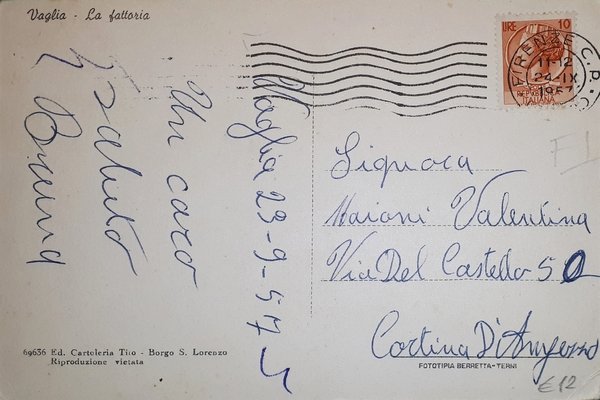 Vaglia - La fattoria
Vaglia 23-9-57
Un caro
saluto
Bruna
LIRE 10
ITALIANA
FIRENZE C.P.
11-12
24.IX
1957
Signora
Maioni Valentina
Via Del Castello 50
Cortina D'Ampezzo
69636 Ed. Cartoleria Tito - Borgo S. Lorenzo
Riproduzione vietata
FOTOTIPIA BERRETTA-TERNI
€12